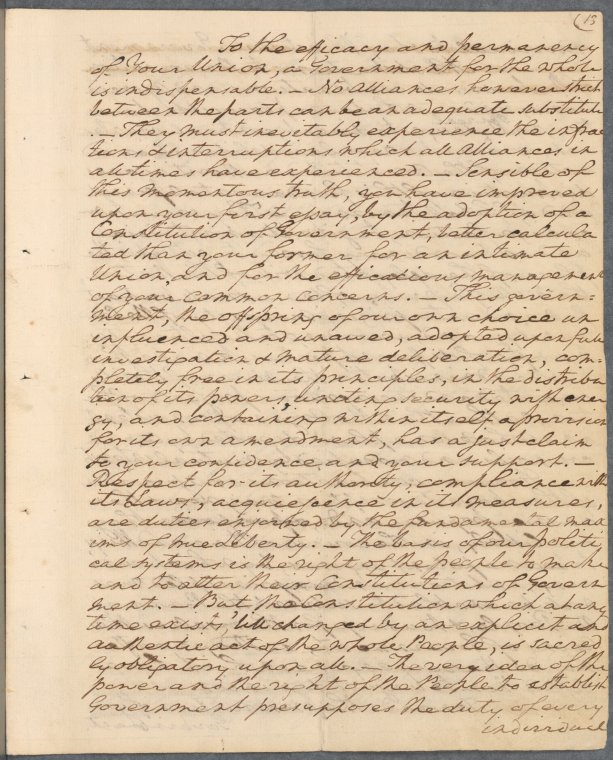 13
To the efficacy and permanency
of Your Union, a Government for the whole
is indispensable. — No Alliances however strict
between the parts can be an adequate substitute
. — They must inevitably experience the infrac
tions & interruptions which all Alliances in
all times have experienced. — Sensible of
this momentous truth, you have improved
upon your first essay, by the adoption of a
Constitution of Government, better calcula
ted than your former for an intimate
Union, and for the efficacious management
of your common concerns. — This govern=
ment, the offspring of our own choice un
influenced and unawed, adopted upon full
investigation & mature deliberation, com=
pletely free in its principles, in the distribu
tion of its powers, uniting security with ener
gy, and containing within itself a provision
for its own amendment, has a just claim
to your confidence and your support. —
Respect for its authority, compliance with
its Laws, acquiescence in its measures,
are duties enjoined by the fundamental max
ims of true Liberty. — The basis of our politi
cal systems is the right of the people to make
and to alter their Constitutions of Govern
ment. — But the Constitution which at any
time exists, 'till changed by an explicit and
authentic act of the whole People, is sacred
ly obligatory upon all. — The very idea of the
power and the right of the People to establish
Government presupposes the duty of every
individual